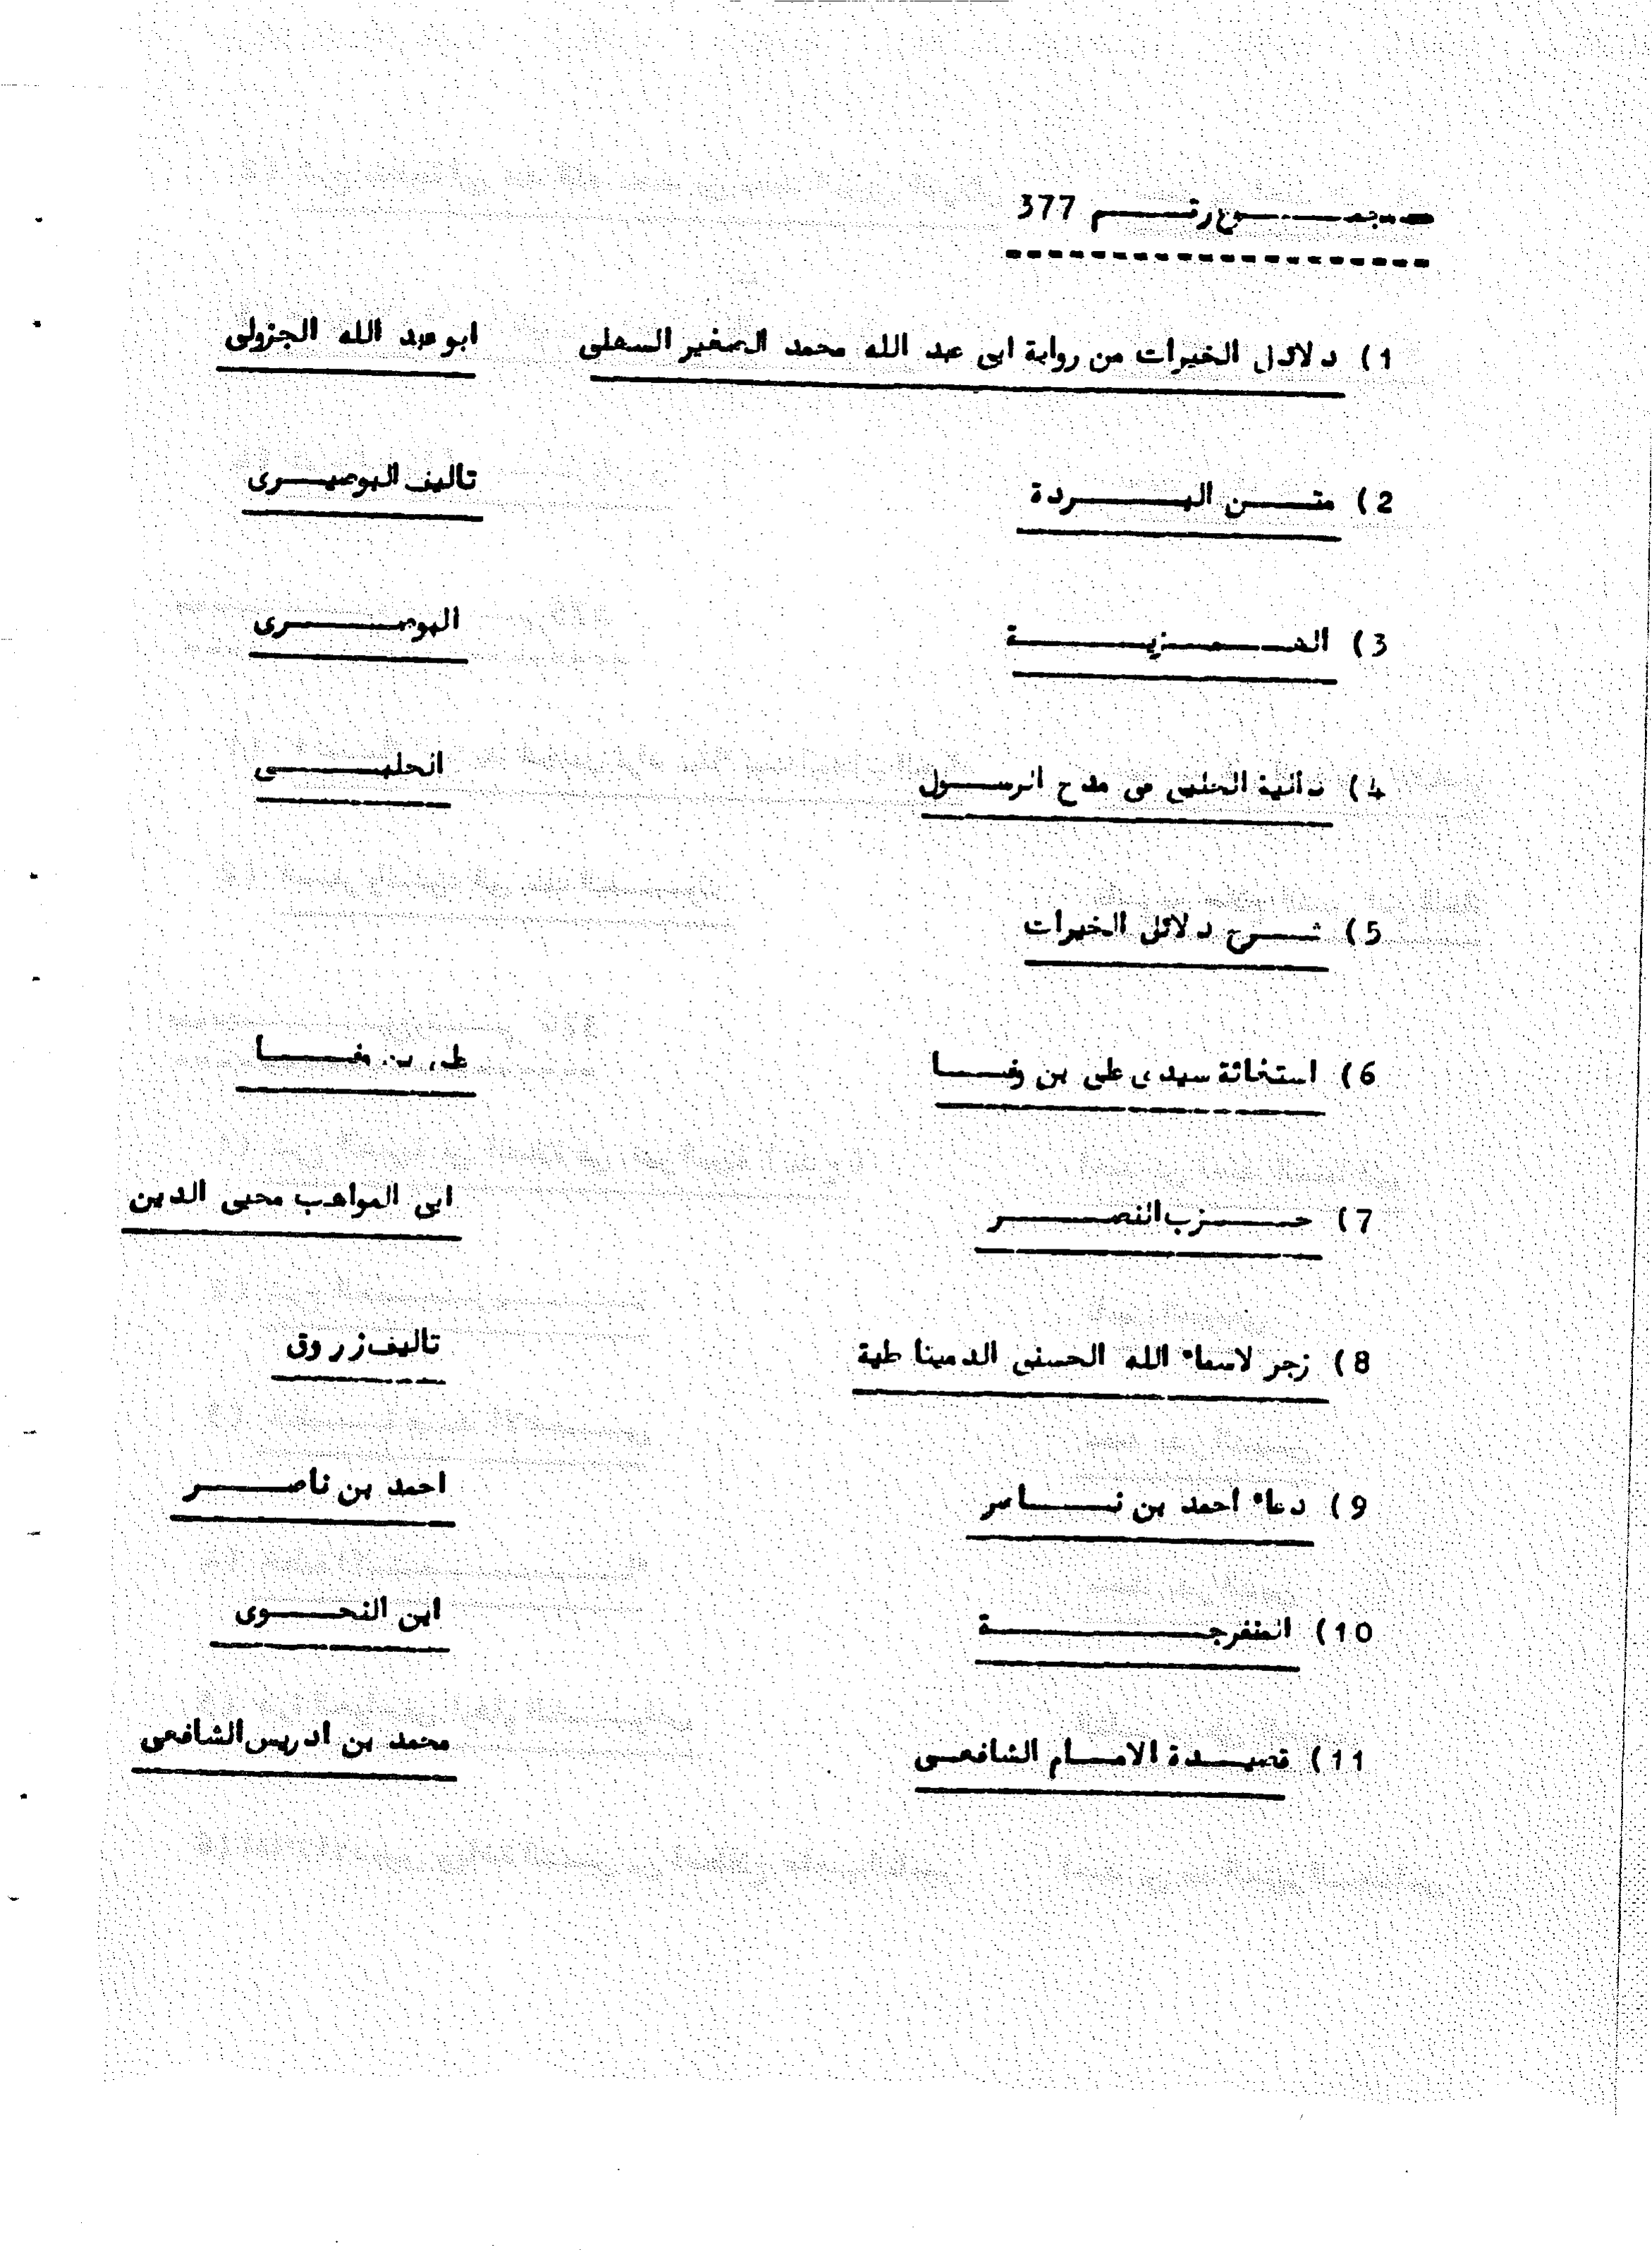 مجموع رقم 377
1) دلائل الخيرات من رواية ابى عبد الله محمد الصغير السهلى ابو عبد الله الجزولى
2) متن البردة تاليف البوصيرى
3) الهمزية البوصيرى
4) دالية الحلبى فى مدح الرسول الحلبى
5) شرح دلائل الخيرات
6) استغاثة سيدى على بن وفا على بن وفا
7) حزب النصر ابى المواهب محيى الدين
8) زجر لاسماء الله الحسنى الدمياطية تاليف زروق
9) دعاء احمد بن ناصر احمد بن ناصر
10) المنفرجة ابن النحوى
11) قصيدة الامام الشافعى محمد بن ادريس الشافعى